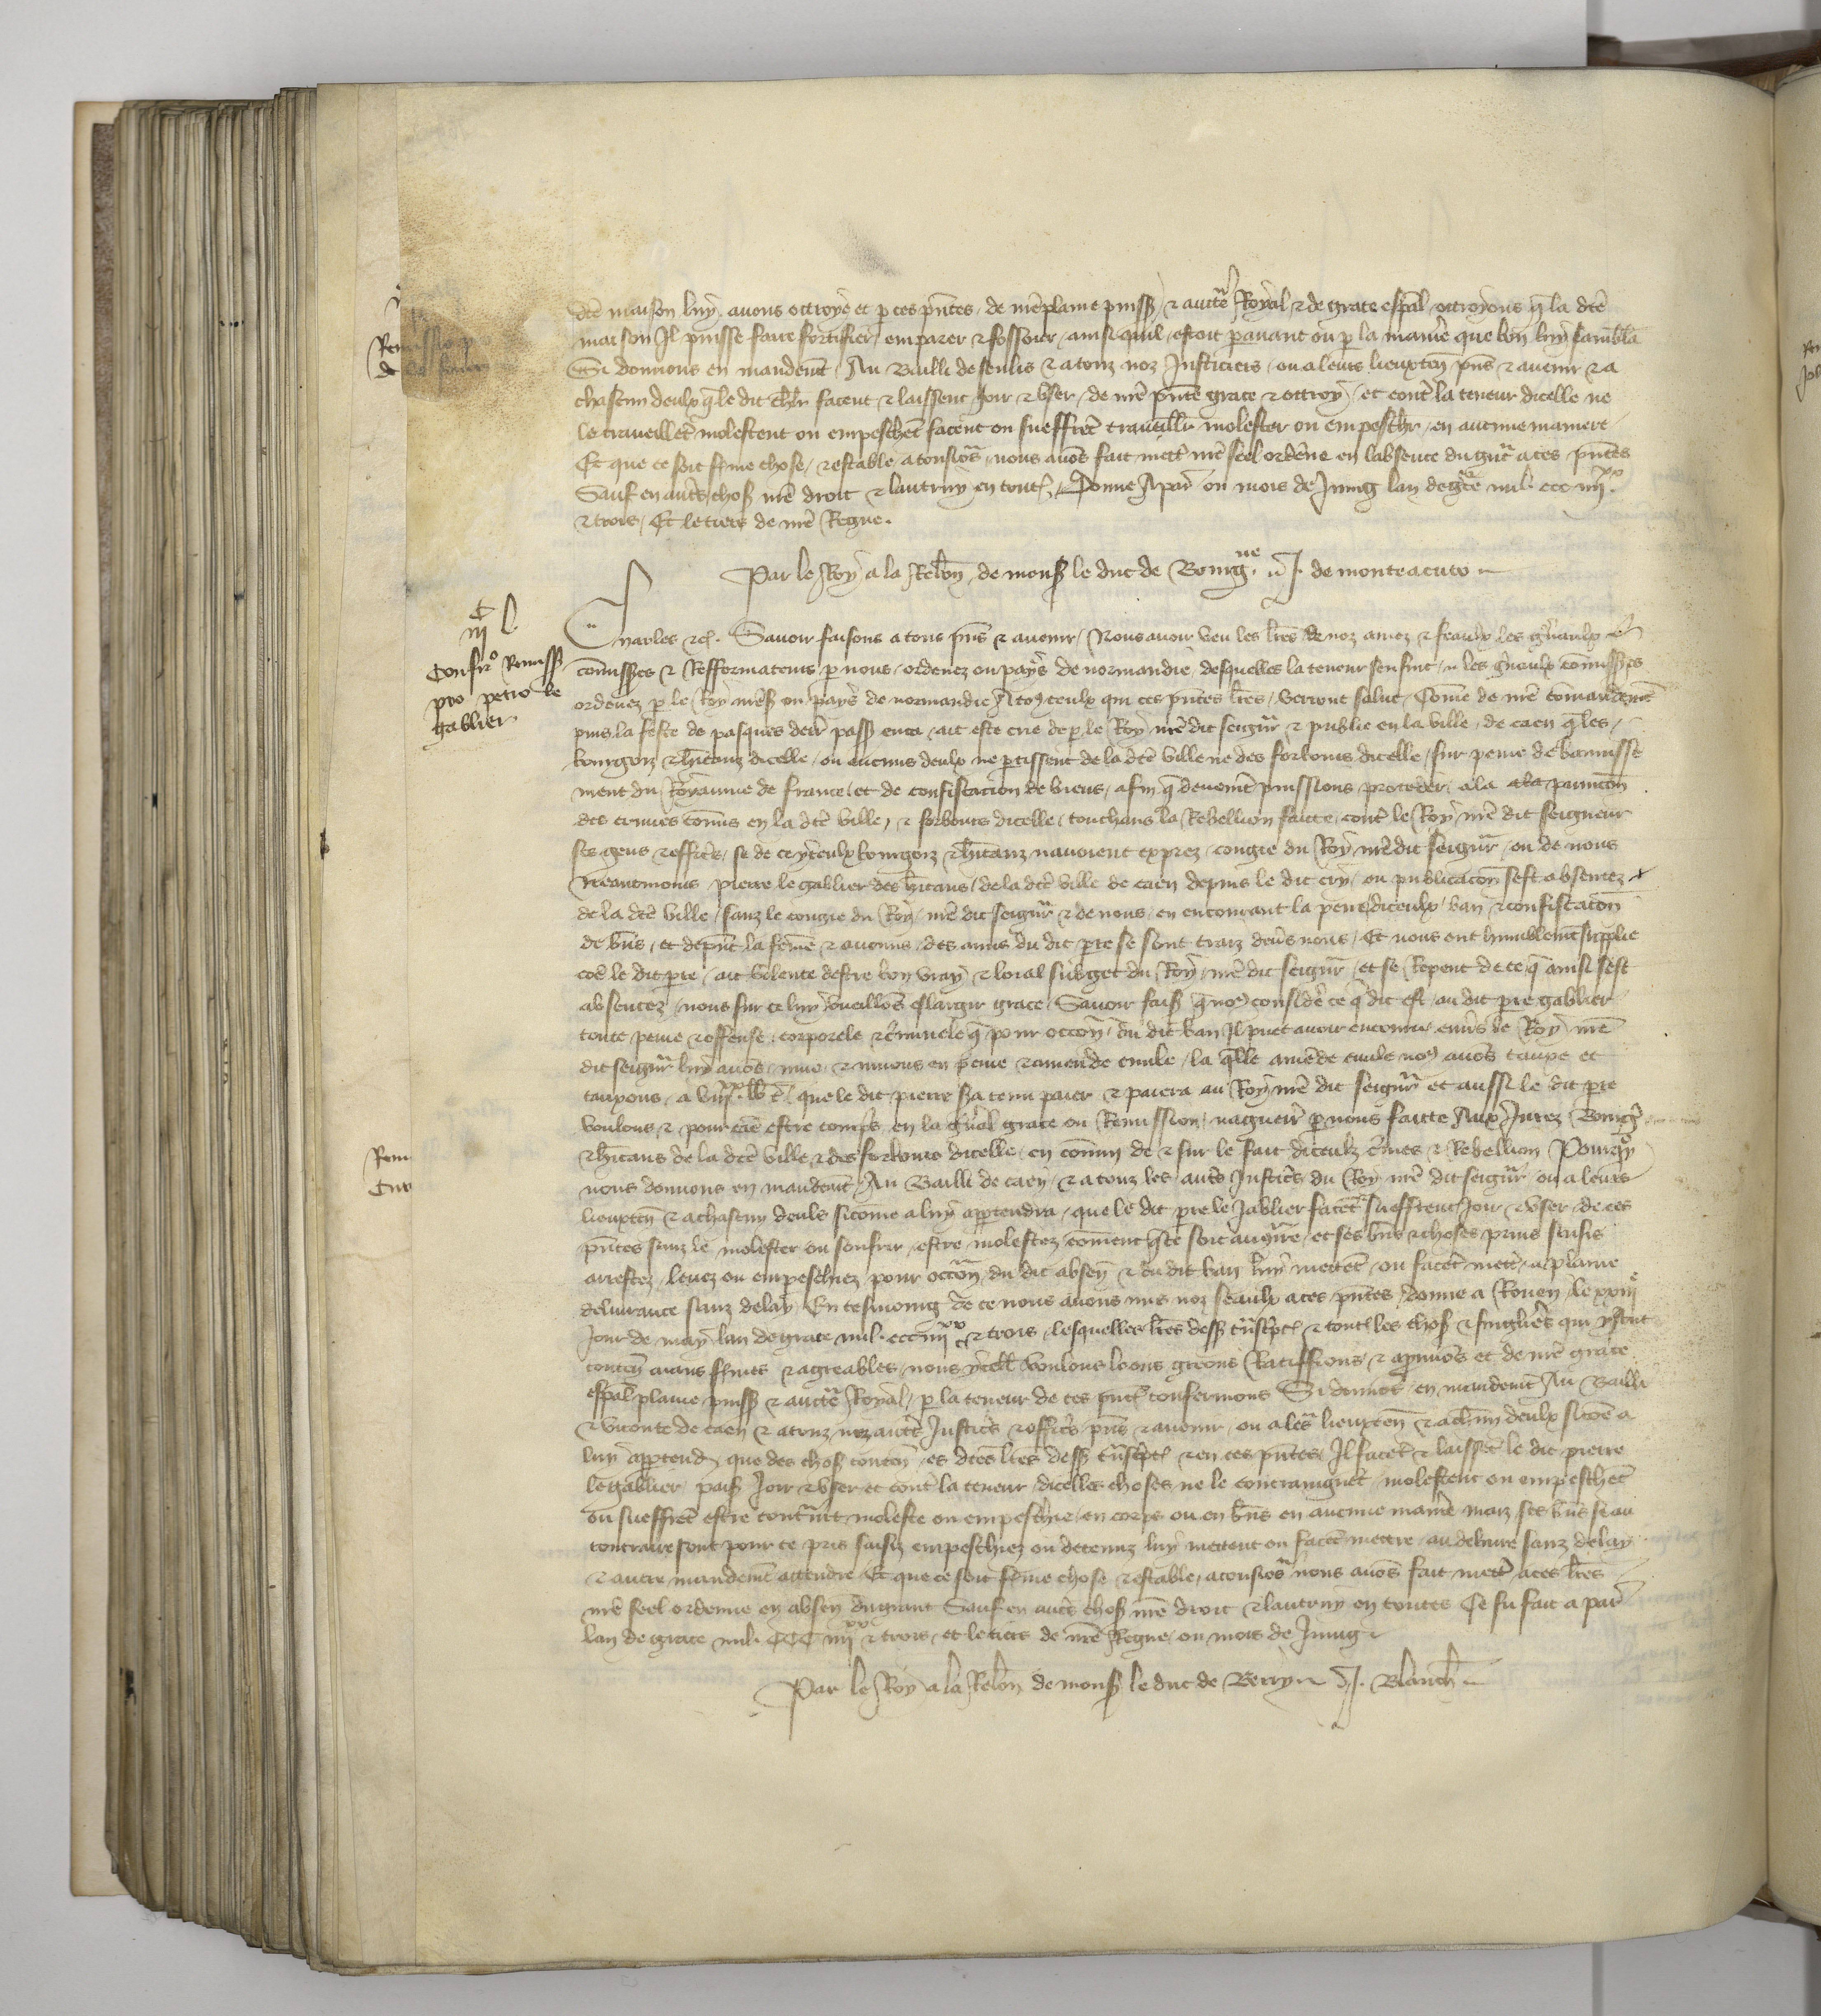 dcē maison luy avons ottroye et p ces pn̄tes de nr̄e plaine puiss & auctē Royal & de grace esp̄al ottroyons q̄ la dcē
maison Il puisse faire fortifier emparer & fossoier ainsi quil estoit pavant ou p la manie᷑ que bon luy samblā
Si donnons en mandemt̄ Au Bailli de senlis & a touz noz Justiciers ou a leurs lieuxten̄ pn̄s & avenir & a
chascun deulx q̄ le dit chlr̄ facent & laissent joir & user de nr̄e pn̄te grace & ottroy et contr̄ la teneur dicelle ne
le travaillet̄ molestent ou empeschet̄ facent ou sueffret̄ travaillr molester ou empeschr en aucune maniere
Et que ce soit ferme chose & estable a tousiors nous avōs fait mett̄ nr̄e seel ordēne en labsence du gnt̄ a ces pn̄tes
Sauf en autr̄s chos nr̄e droit & lautruy en tout Donne A par ou mois de Juing lan de gce mil ccc iiijxx
& trois Et le tiers de nr̄e Regne.
Par le Roy a la Relōn de mons le duc de Bourgne J. de monteacuto
C
iij l
Confirō Remiss
pro petro le
gablier
Charles &c. Savoir faisons a tous pn̄s & avenir Nous avoir veu les lr̄es de noz amez & feaulx les gn̄aulx
cōmiss̄es & Refformateurs p nous ordenez ou pays de normandie desquelles la teneur sensuit les gn̄eulx cōmiss̄es
ordenez p le Roy nr̄es ou pays de normandie A toz ceulx qui ces pn̄tes lr̄es verront salut Cōme de nr̄e cōmandemt̄
puis la feste de pasques derr̄ pass enca ait este crie de p le Roy nr̄e dit seigur & publie en la ville de caen q̄ les
bourgoiz & hitanz dicelle ou aucuns deulx ne ptissent de la dcē ville ne des forbours dicelle sur peine de bannisse
ment du Royaume de france et de confiscacion de biens afin q̄ deuemt̄ puissions proceder a la a la punicōn
des crimes cōmis en la dcē ville & forbours dicelle touchans la Rebellion faicte contr̄ le Roy nr̄e dit seigneur
ses gens & offic̄rs se de ce yceulx bourgoiz & hitanz navoient exprez congie du Roy nr̄e dit seigur ou de nous
Neantmoins pierre le gablier des hitans de la dcē ville de caen depuis le dit cry ou publicacōn sest absentez
de la dcē ville sanz le congie du Roy nr̄e dit seigur & de nous en encourant la peine diceulx ban & confiscacōn
de bn̄s et depuis la fēme & aucuns des amis du dit pre se sont traiz devs nous Et nous ont humblemt̄ supplie
cōe le dit pre ait volente destre bon vray & loial subget du Roy nr̄e dit seigur et se Repent de ce q̄ ainsi sest
absentez nous sur ce luy vueillōs eslargir grace Savoir fais q̄ no9 considēr ce q̄ dit est au dit pre gablier
toute peine & offense corporele & c̄minele q̄ pour occōn du dit ban Il puet avoir encouru envrs le Roy nr̄e
dit seigur luy avōs mue & muons en peine & amende civile la qlle amēde civile no9 avōs tauxe et
tauxons a que le dit pierre sa tenu paier & paiera au Roy nr̄e dit seigur et aussi le dit pre
voulons & estre comps en la gn̄al grace ou Remission naguerr̄ p nous faitte Aux Jurez Bourg
& hitans de la dcē ville & des forbours dicelle en cōmun de & sur le fait diceulz c̄mes & Rebellion Pourqoy
nous donnons en mandemt̄ Au Bailli de caen & a touz les autr̄s Justic̄rs du Roy nr̄e dit seigur ou a leurs
lieuxten̄ & a chascun deuls sicōme a luy apptendra que le dit pre le Jablier facet̄ sueffrent joir & user de ces
pn̄tes sanz le molester ou soufrir estre molestez cōment q̄ ce soit au contrire et ses bn̄s & choses prins saisis
arrestez levez ou empeschiez pour occōn du dit absen̄ & du dit ban luy mettet̄ ou facet̄ mettr̄ a plaine
delivrance sanz delay En tesmoing de ce nous avons mis noz seaulx a ces pn̄tes donne a Rouen le xxiije
jour de may lan de grace mil ccc iiijxx & trois lesquelles lr̄es dess tn̄scpt & tout les chos & singlrs̄ qui y sont
conten̄ aians fermes & agreables nous ycell voulons loons greons Ratiffions & approuvōs et de nr̄e grace
esp̄al plaine puiss & auctē Royal p la teneur de ces pn̄t confermons Si donnōs en mandemt̄ Au Bailli
& viconte de caen & a touz noz autr̄s Justic̄rs & offic̄rs pn̄s & avenir ou a lers lieuxten̄ & a chun deulx sicōe a
luy apptend que des chos conten̄ es dcēs lr̄es dess tn̄scpt & en ces pn̄tes Il facet̄ & laisset̄ le dit pierre
le gablier pais joir & user et contr̄ la teneur dicelles choses ne le contraingnet̄ molestent ou empeschet̄
ou sueffret̄ estre contrint moleste ou empeschie en corps ou en bn̄s en aucune manie᷑ maiz ses bn̄s se au
contraire sont pour ce pris saisiz empeschiez ou detenuz luy mettent ou facet̄ mettre au delivre sanz delay
& autre mandemt̄ attendre Et que ce soit ferme chose & estable a tousiors nous avōs fait mettr̄ a ces lr̄es
nr̄e seel ordenne en absen̄ du grant Sauf en autr̄s chos nr̄e droit & lautruy en toutes Ce fu fait a par
lan de grace mil CCC iiijxx & trois et le tiers de nr̄e Regne ou mois de Juing
Par le Roy a la Relon de mons le duc de Berry J. Blanch